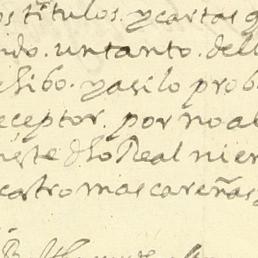 os titulos. y cartas q
ido. un tanto. dell
chibo. y asi lo prob
eceptor. por no al
este dho Real nien
castro mascareñas